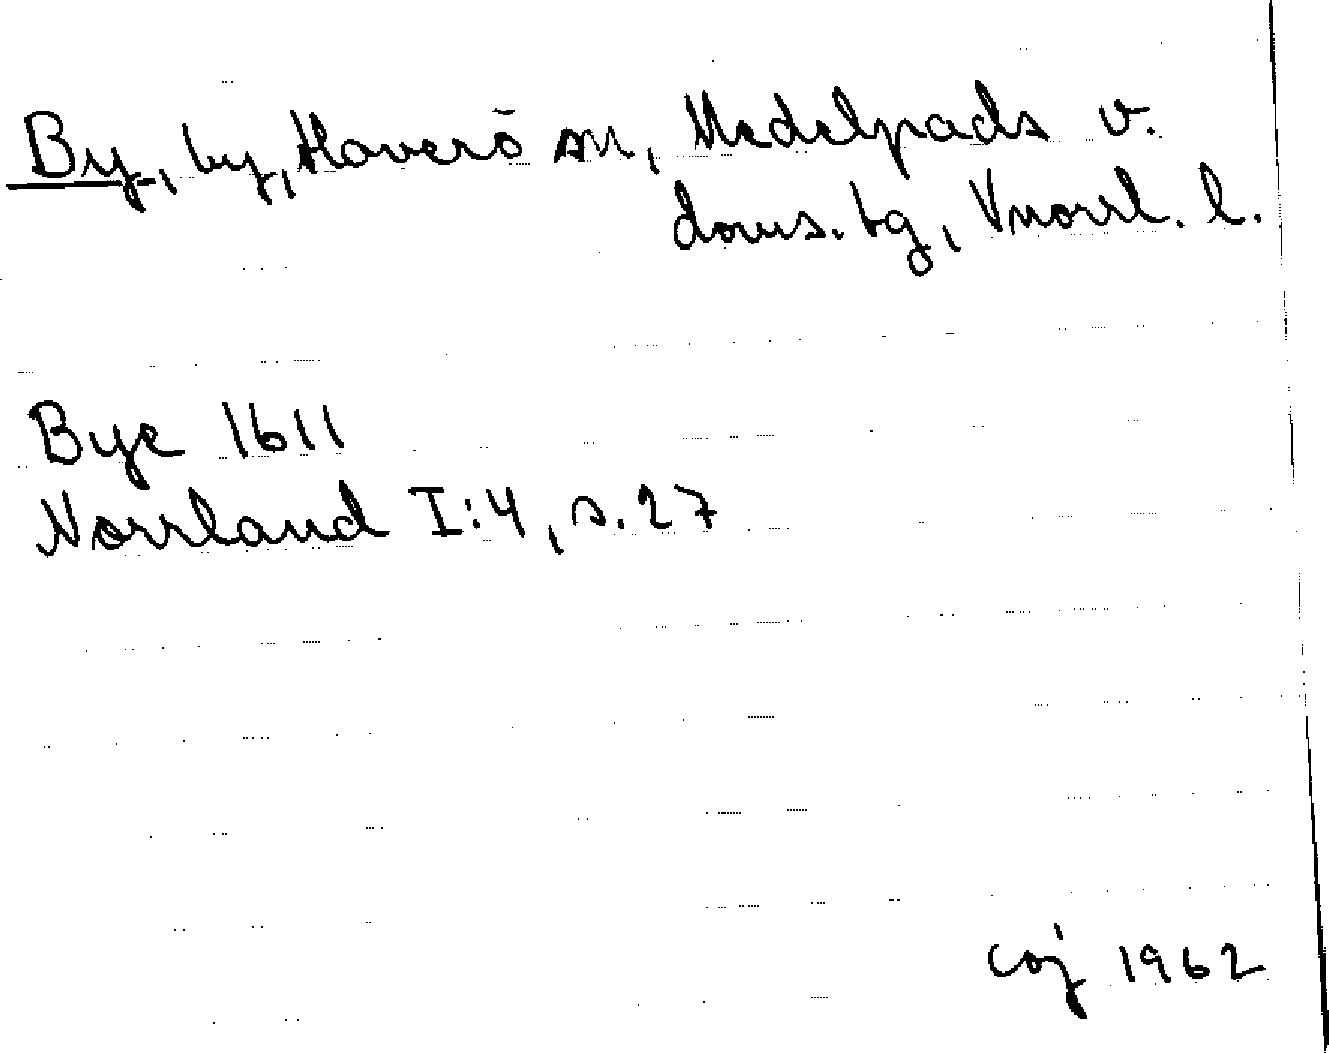 By, by, Haverö sn, Medelpads v.
doms. tg, Vnorrl. l.
Bye 1611
Norrland I:4, s. 27
Coj 1962